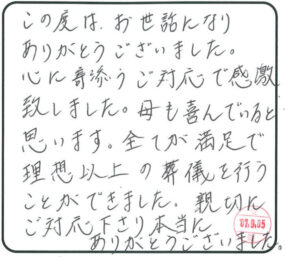 この度は、お世話になり
ありがとうございました。
心に寄添うご対応で感激
致しました。母も喜んでいると
思います。全てが満足で
理想以上の葬儀を行う
ことができました。親切に
ご対応下さり本当に
ありがとうございました。